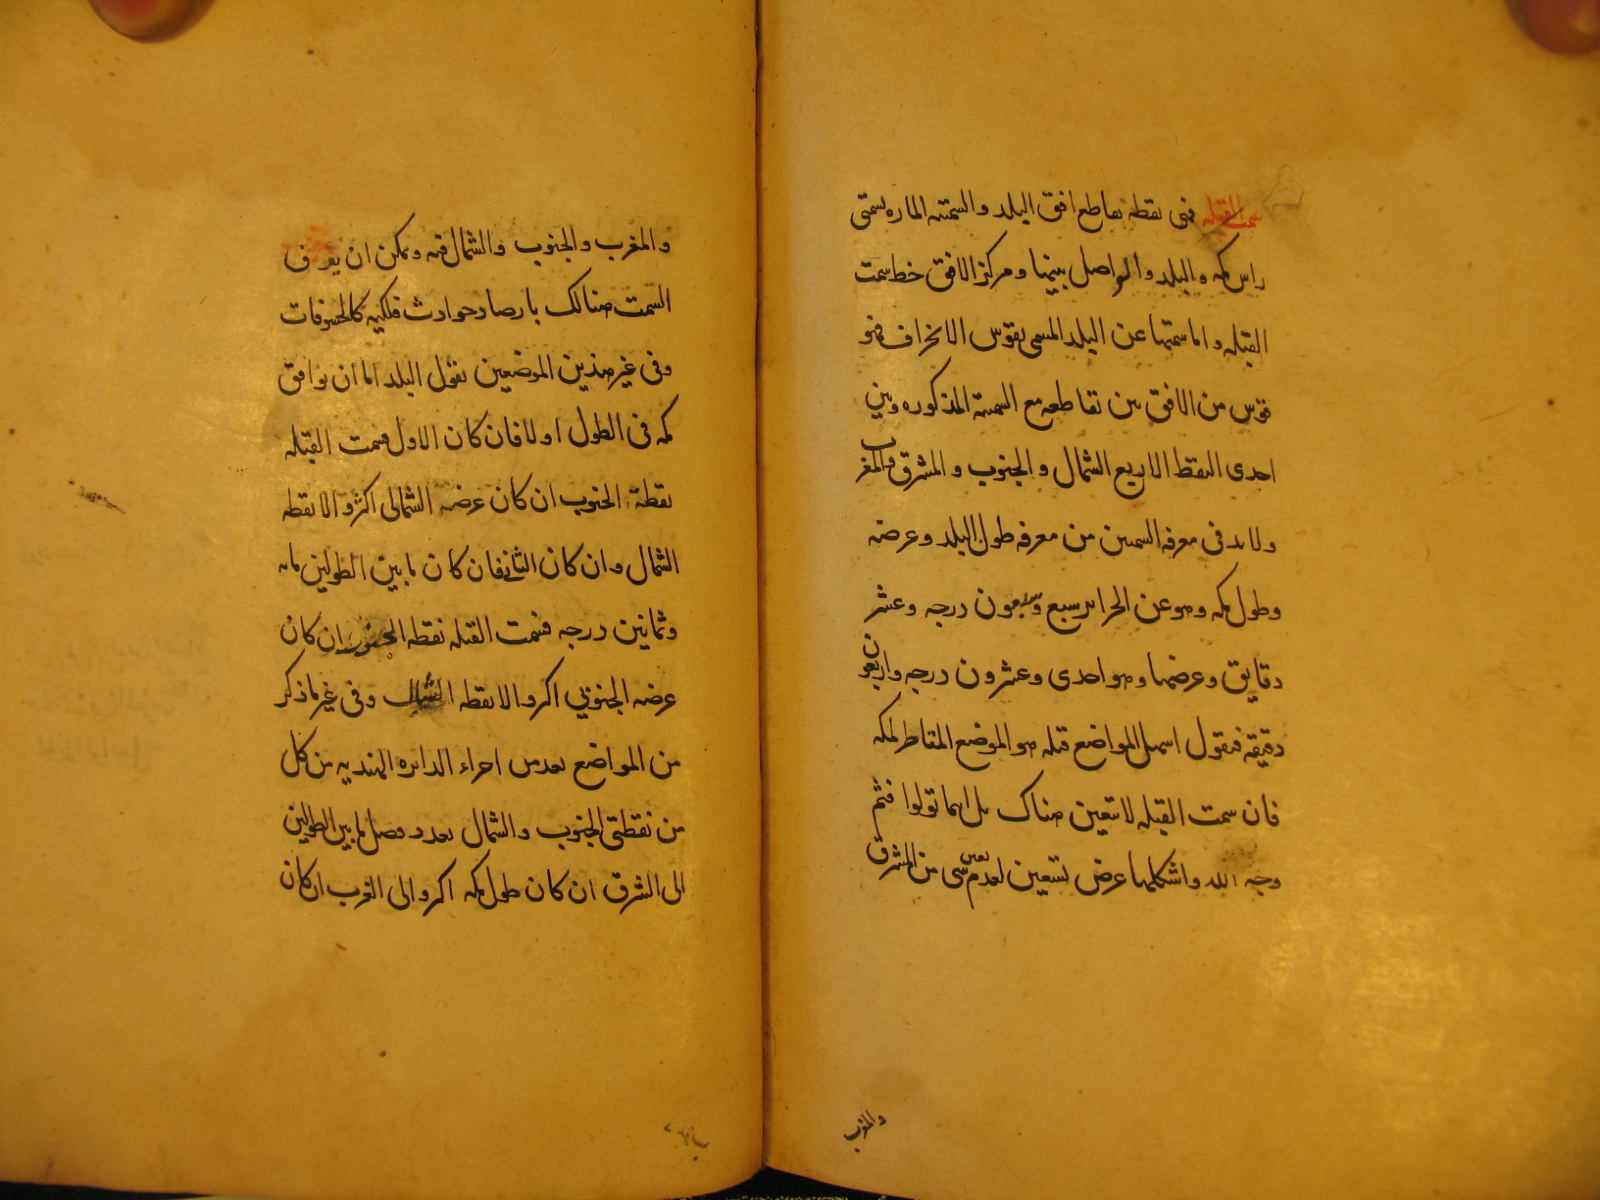 سمت القبله فهى نقطة تقاطع افق البلد والسمتيه الماره بسمتى
راس مكه والبلد والواصل بينها ومركز الافق خط سمت
القبله واما سمتها عن البلد المسمى بقوس الانحراف فهو
قوس من الافق بين تقاطعه مع السمتية المذكوره وبين
احدى النقط الاربع الشمال والجنوب والمشرق والمغرب
ولابد فى معرفه السمتين من معرفه طول البلد وعرضه
وطول مكه وهو عن الجزاير سبع وسبعون درجه وعشر
دقايق وعرضها وهو احدى وعشرون درجه واربعون
دقيقه فنقول اسهل المواضع قبله هو الموضع المقاطر لمكه
فان سمت القبله لا يتعين هناك بل اينما تولوا فثم
وجه الله واشكلها عرض تسعين لعدم تعين شى من المشرق
والمغرب
والمغرب والجنوب والشمال فيه ويمكن ان يعرف
السمت هنالك بارصاد حوادث فلكيه كالخسوفات
وفى غير هذين الموضعين نقول البلد اما ان يوافق
مكه فى الطول اولا فان كان الاول فسمت القبله
نقطة الجنوب ان كان عرضه الشمالى اكثر والا نقطه
الشمال وان كان الثانى فان كان ما بين الطولين مايه
وثمانين درجه فسمت القبله نقطه الجنوب ان كان
عرضه الجنوبي اكثر والا نقطه الشمال وفى غير ما ذكر
من المواضع نعد من اجزاء الدائره الهنديه من كل
من نقطتى الجنوب والشمال بعدد فضل ما بين الطولين
الى الشرق ان كان طول مكه اكثر والى الغرب ان كان